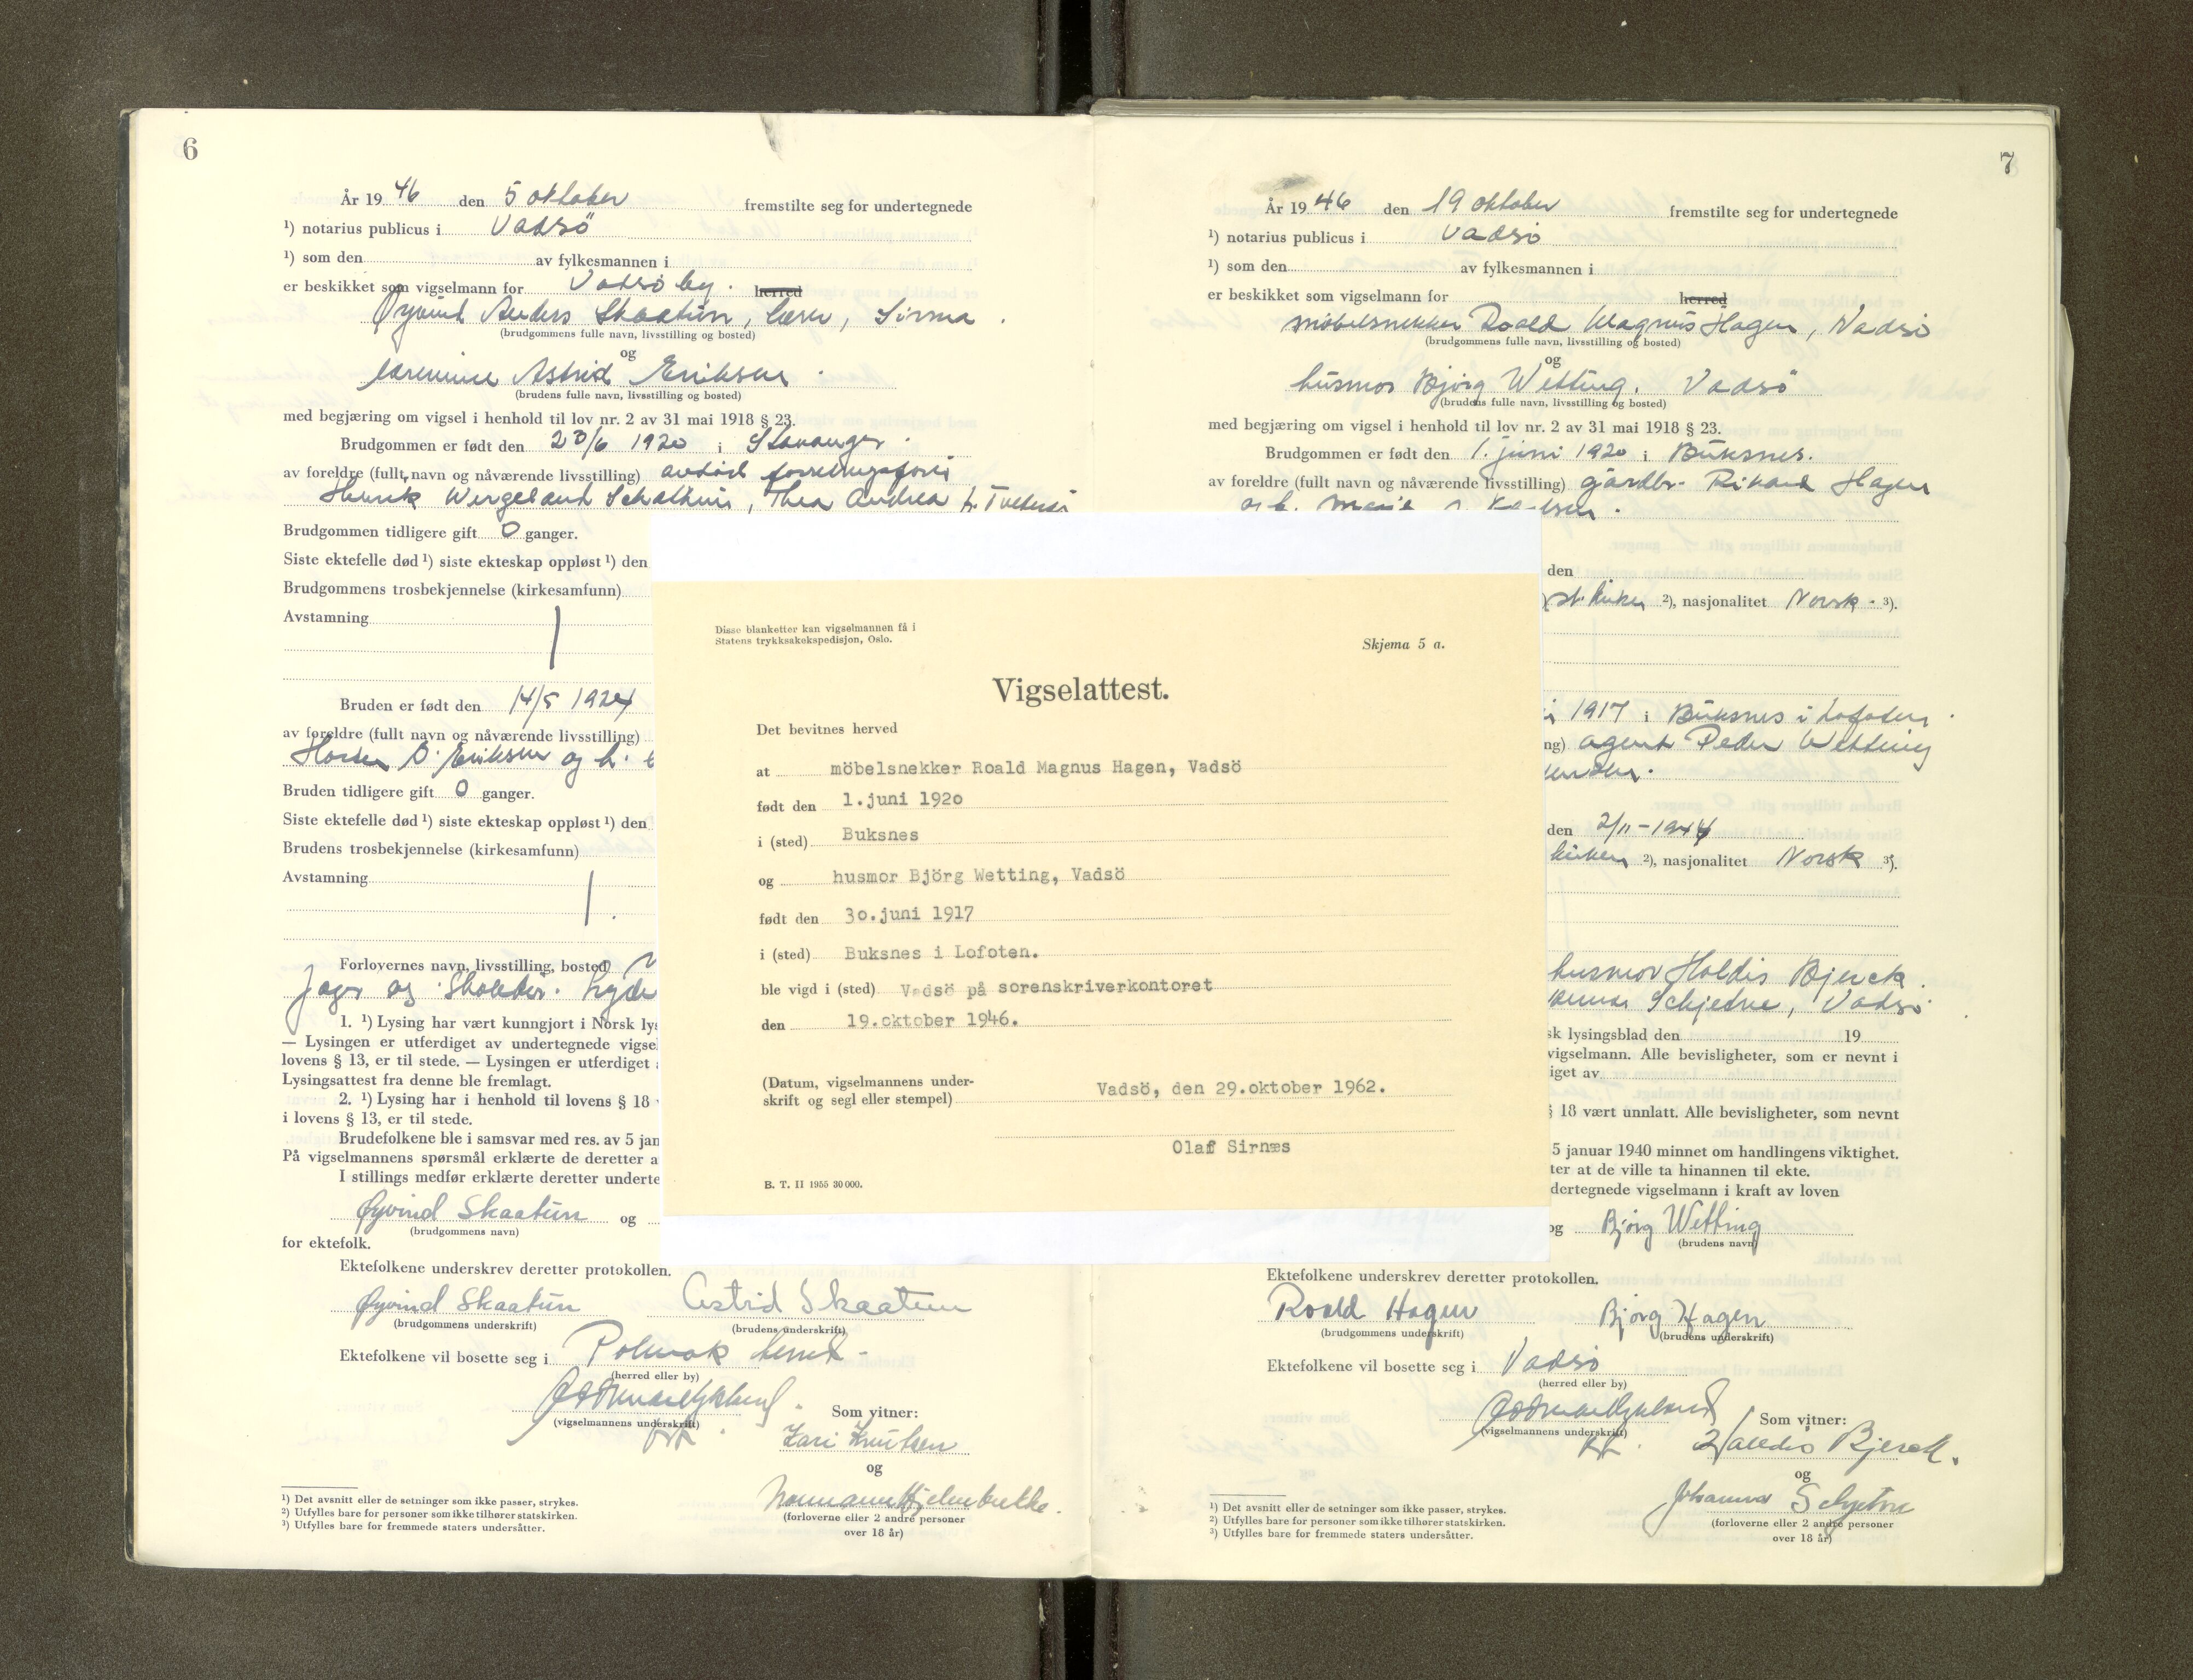 6
År 19 46 den 5 oktober fremstilte seg for undertegnede
¹) notarius publicus i Vadsö
¹) som den av fylkesmannen i
er beskikket som vigselmann for Vadsö by. herred
Øyvind Anders Skaatun, lærer, Sirma.
(brudgommens fulle navn, livsstilling og bosted)
og
lærerinne Astrid Eriksen.
(brudens fulle navn, livsstilling og bosted)
med begjæring om vigsel i henhold til lov nr. 2 av 31 mai 1918 § 23.
Brudgommen er født den 23/6 1920 i Stavanger.
av foreldre (fullt navn og nåværende livsstilling) avdöd
Henrik Wergeland, Thea Andrea f.
Brudgommen tidligere gift 0 ganger.
Siste ektefelle død ¹) siste ekteskap oppløst ¹) den
Brudgommens trosbekjennelse (kirkesamfunn)
Avstamning
Bruden er født den 14/5 1924
av foreldre (fullt navn og nåværende livsstilling)
Eriksen og h.
Bruden tidligere gift 0 ganger.
Siste ektefelle død ¹) siste ekteskap oppløst ¹) den
Brudens trosbekjennelse (kirkesamfunn)
Avstamning
Forlovernes navn, livsstilling, bosted
og
1. ¹) Lysing har vært kunngjort i Norsk lys
— Lysingen er utferdiget av undertegnede vigse
lovens § 13, er til stede. — Lysingen er utferdiget
Lysingsattest fra denne ble fremlagt.
2. ¹) Lysing har i henhold til lovens § 18
i lovens § 13, er til stede.
Brudefolkene ble i samsvar med res. av 5 jan
På vigselmannens spørsmål erklærte de deretter a
I stillings medfør erklærte deretter underte
Øyvind Skaatun og
(brudgommens navn)
for ektefolk.
Ektefolkene underskrev deretter protokollen.
Øyvind Skaatun Astrid Skaatun
(brudgommens underskrift) (brudens underskrift)
Ektefolkene vil bosette seg i Polmak herred.
(herred eller by)
(vigselmannens underskrift)
Som vitner:
Kari Knutsen
og
(forloverne eller 2 andre personer
over 18 år)
¹) Det avsnitt eller de setninger som ikke passer, strykes.
²) Utfylles bare for personer som ikke tilhører statskirken.
³) Utfylles bare for fremmede staters undersåtter.
Disse blanketter kan vigselmannen få i
Statens trykksakekspedisjon, Oslo.
Skjema 5 a.
Vigselattest.
Det bevitnes herved
at möbelsnekker Roald Magnus Hagen, Vadsö
født den 1.juni 1920
i (sted) Buksnes
og husmor Björg Wetting, Vadsö
født den 30.juni 1917
i (sted) Buksnes i Lofoten.
ble vigd i (sted) Vadsö på sorenskriverkontoret
den 19.oktober 1946.
(Datum, vigselmannens under-
skrift og segl eller stempel)
Vadsö, den 29.oktober 1962.
Olaf Sirnæs
B. T. II 1955 30 000.
7
År 19 46 den 19 oktober fremstilte seg for undertegnede
¹) notarius publicus i Vadsö
¹) som den av fylkesmannen i
er beskikket som vigselmann for herred
möbelsnekker Roald Magnus Hagen, Vadsö
(brudgommens fulle navn, livsstilling og bosted)
og
husmor Björg Wetting. Vadsö
(brudens fulle navn, livsstilling og bosted)
med begjæring om vigsel i henhold til lov nr. 2 av 31 mai 1918 § 23.
Brudgommen er født den 1. juni 1920 i Buksnes.
av foreldre (fullt navn og nåværende livsstilling) gårdbr. Rikard Hagen
den
st. kirken ²), nasjonalitet Norsk. ³).
1917 i Buksnes i Lofoten.
ng) agent Peder Wetting
den 2/11-1944
kirken ²), nasjonalitet Norsk ³).
husmor Haldis Bjerck.
Vadsö
sk lysingsblad den 19
vigselmann. Alle bevisligheter, som er nevnt i
iget av
§ 18 vært unnlatt. Alle bevisligheter, som nevnt
5 januar 1940 minnet om handlingens viktighet.
ter at de ville ta hinannen til ekte.
dertegnede vigselmann i kraft av loven
og Björg Wetting
(brudens navn)
Ektefolkene underskrev deretter protokollen.
Roald Hagen Björg Hagen
(brudgommens underskrift) (brudens underskrift)
Ektefolkene vil bosette seg i Vadsö
(herred eller by)
(vigselmannens underskrift)
Som vitner:
Halldis Bjerck.
og
Johanna
(forloverne eller 2 andre personer
over 18 år)
¹) Det avsnitt eller de setninger som ikke passer, strykes.
²) Utfylles bare for personer som ikke tilhører statskirken.
³) Utfylles bare for fremmede staters undersåtter.